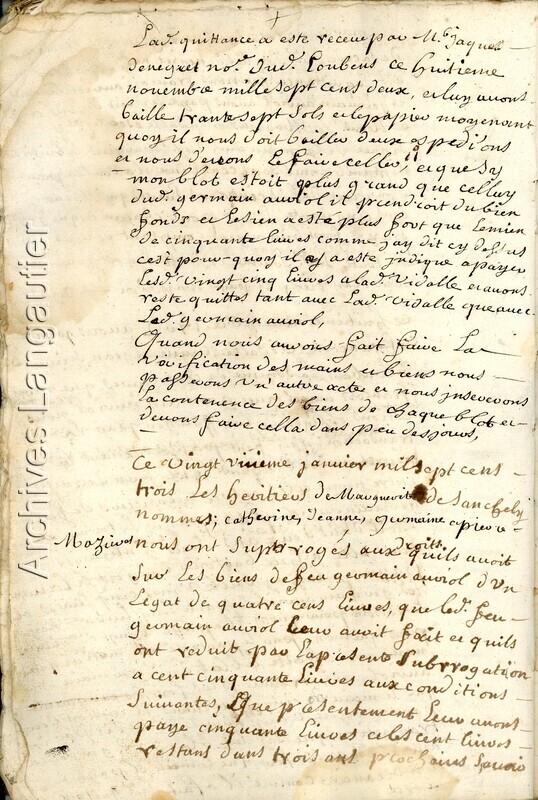 Lad. quittance a esté receue par Me Jaques
Deneyret nore. dud. Loubens ce huitieme
novembre mille sept cens deux, et luy avons
baille trante sept sols et le papier moyenent
quoy il nous doit bailler deux expedions
et nous devons le faire celler, et que sy
mon blot estoit plus grand que celluy
dud. germain auriol il prendroit du bien
fonds et le sien a esté plus fort que le mien
de cinquante livres comme jay dit cy dessus
cest pour quoy il a este indique a payer
lesd. vingt cinq livres a lad. vidalle et avons
reste quittes tant avec lad. vidalle que avec
led. germain auriol,
Quand nous aurons fait faire la
des mains et biens nous
passerons un autre acte et nous insererons
la contenence des biens de chaque blot et
devons faire cella dans peu des jours,
Ce vingt janvier mil sept cens
trois les heritiers de Marguerite de Sanchely
nommes; catherine, jeanne, germaine et pierre
Mazieres nous ont suptrogés aux droitz quils avoit
sur les biens de feu germain auriol dun
legat de quatre cens livres, que led. feu
germain auriol leur avoit fait et quils
ont reduit par la presente subrrogation
a cent cinquante livres aux conditions
suivantes, que presentement leur avons
paye cinquante livres et les cent livres
restans dans trois ans prochains savoir
Archives Langautier